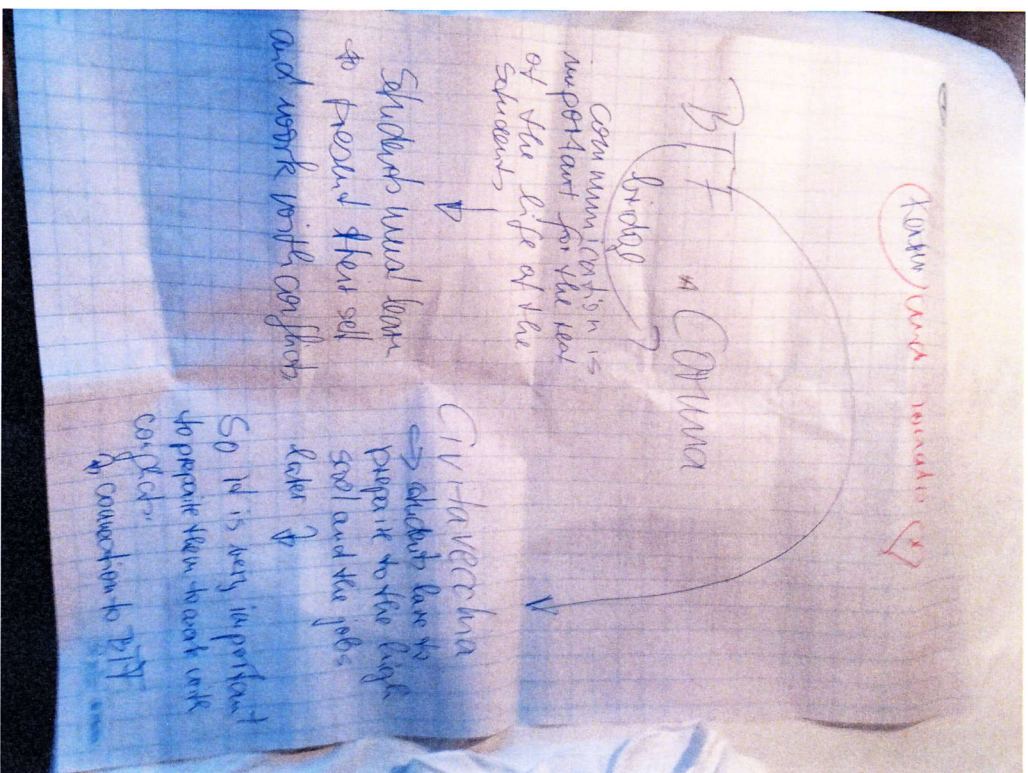 BTF
bridge
communication is
important for the real
of the life of the
students
Students must learn
to present their self
and work with conflicts
Civitavecchia
⇒ students have to
prepare to the high
sool and the jobs
later
So it is very important
to prepare them to work with
conflicts
connection to BTF